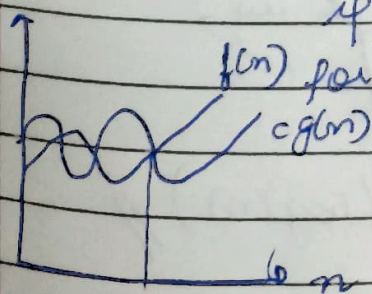 if
f(n) for
cg(n)
n